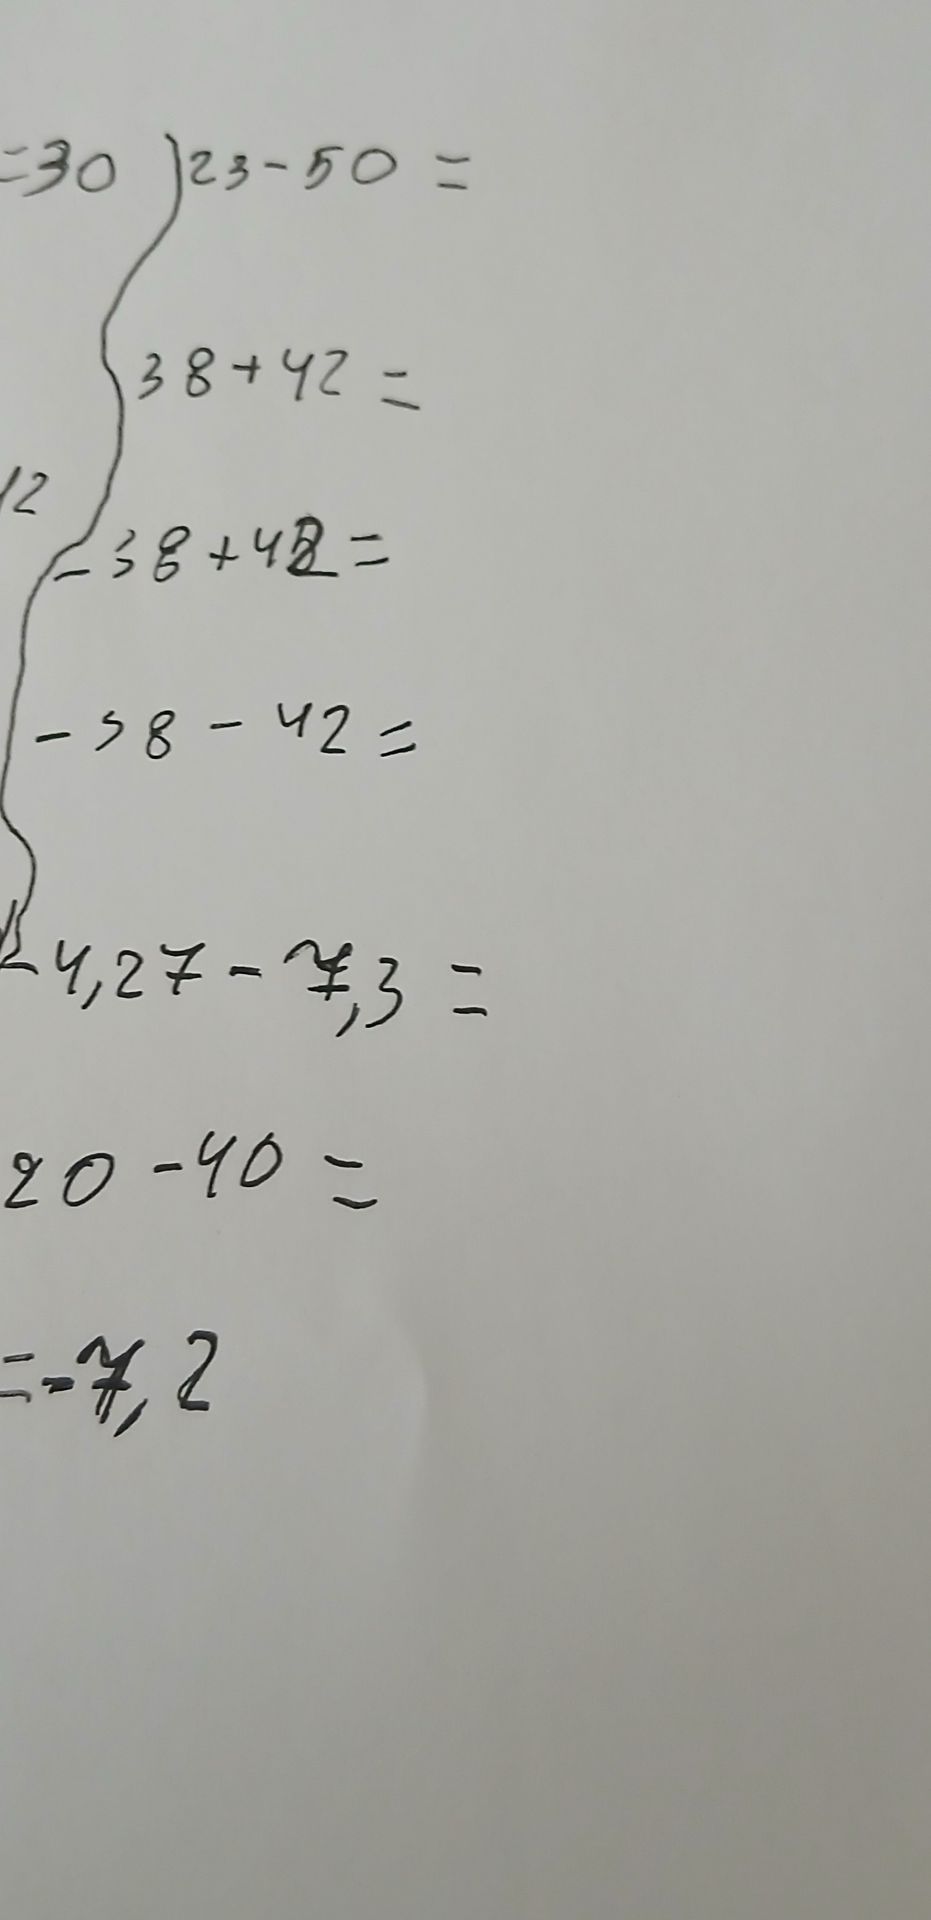 =30 23-50=
38+42=
12
-38+42=
-38-42=
-4,27-7,3=
20-40=
=-7,2